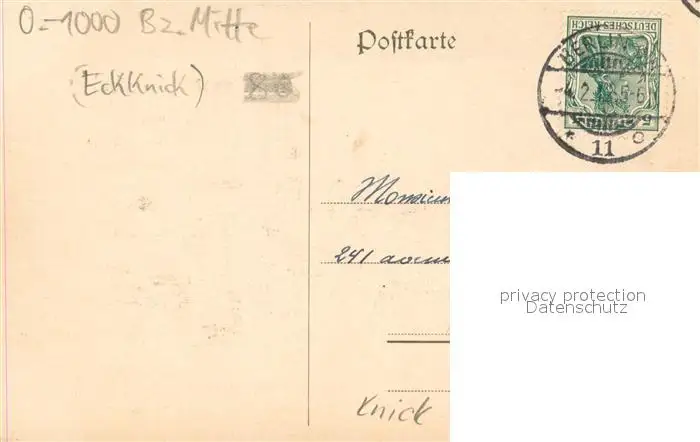 O-1000 Bz. Mitte
(EckKnick)
Postkarte
DEUTSCHES REICH
5
BERLIN
5-6
* 11 e
Monsieur
241 avenu
privacy protection
Datenschutz
Knick